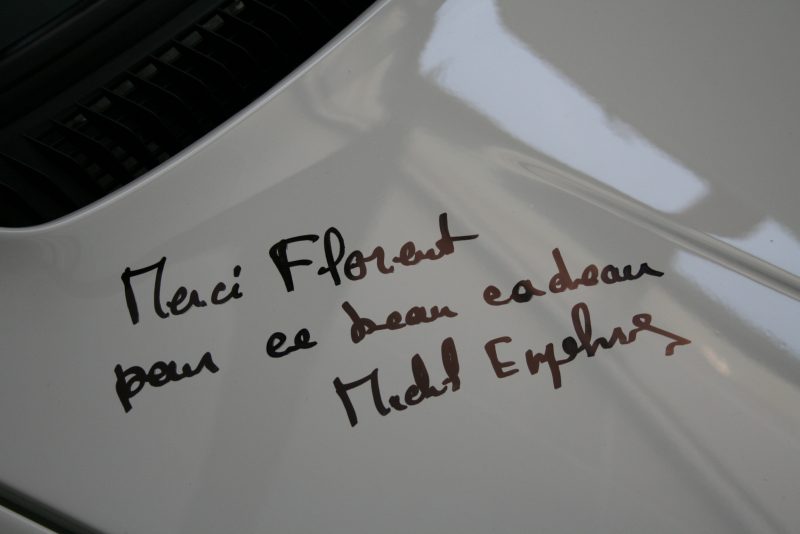 Merci Florent
pour ce beau cadeau
Michel